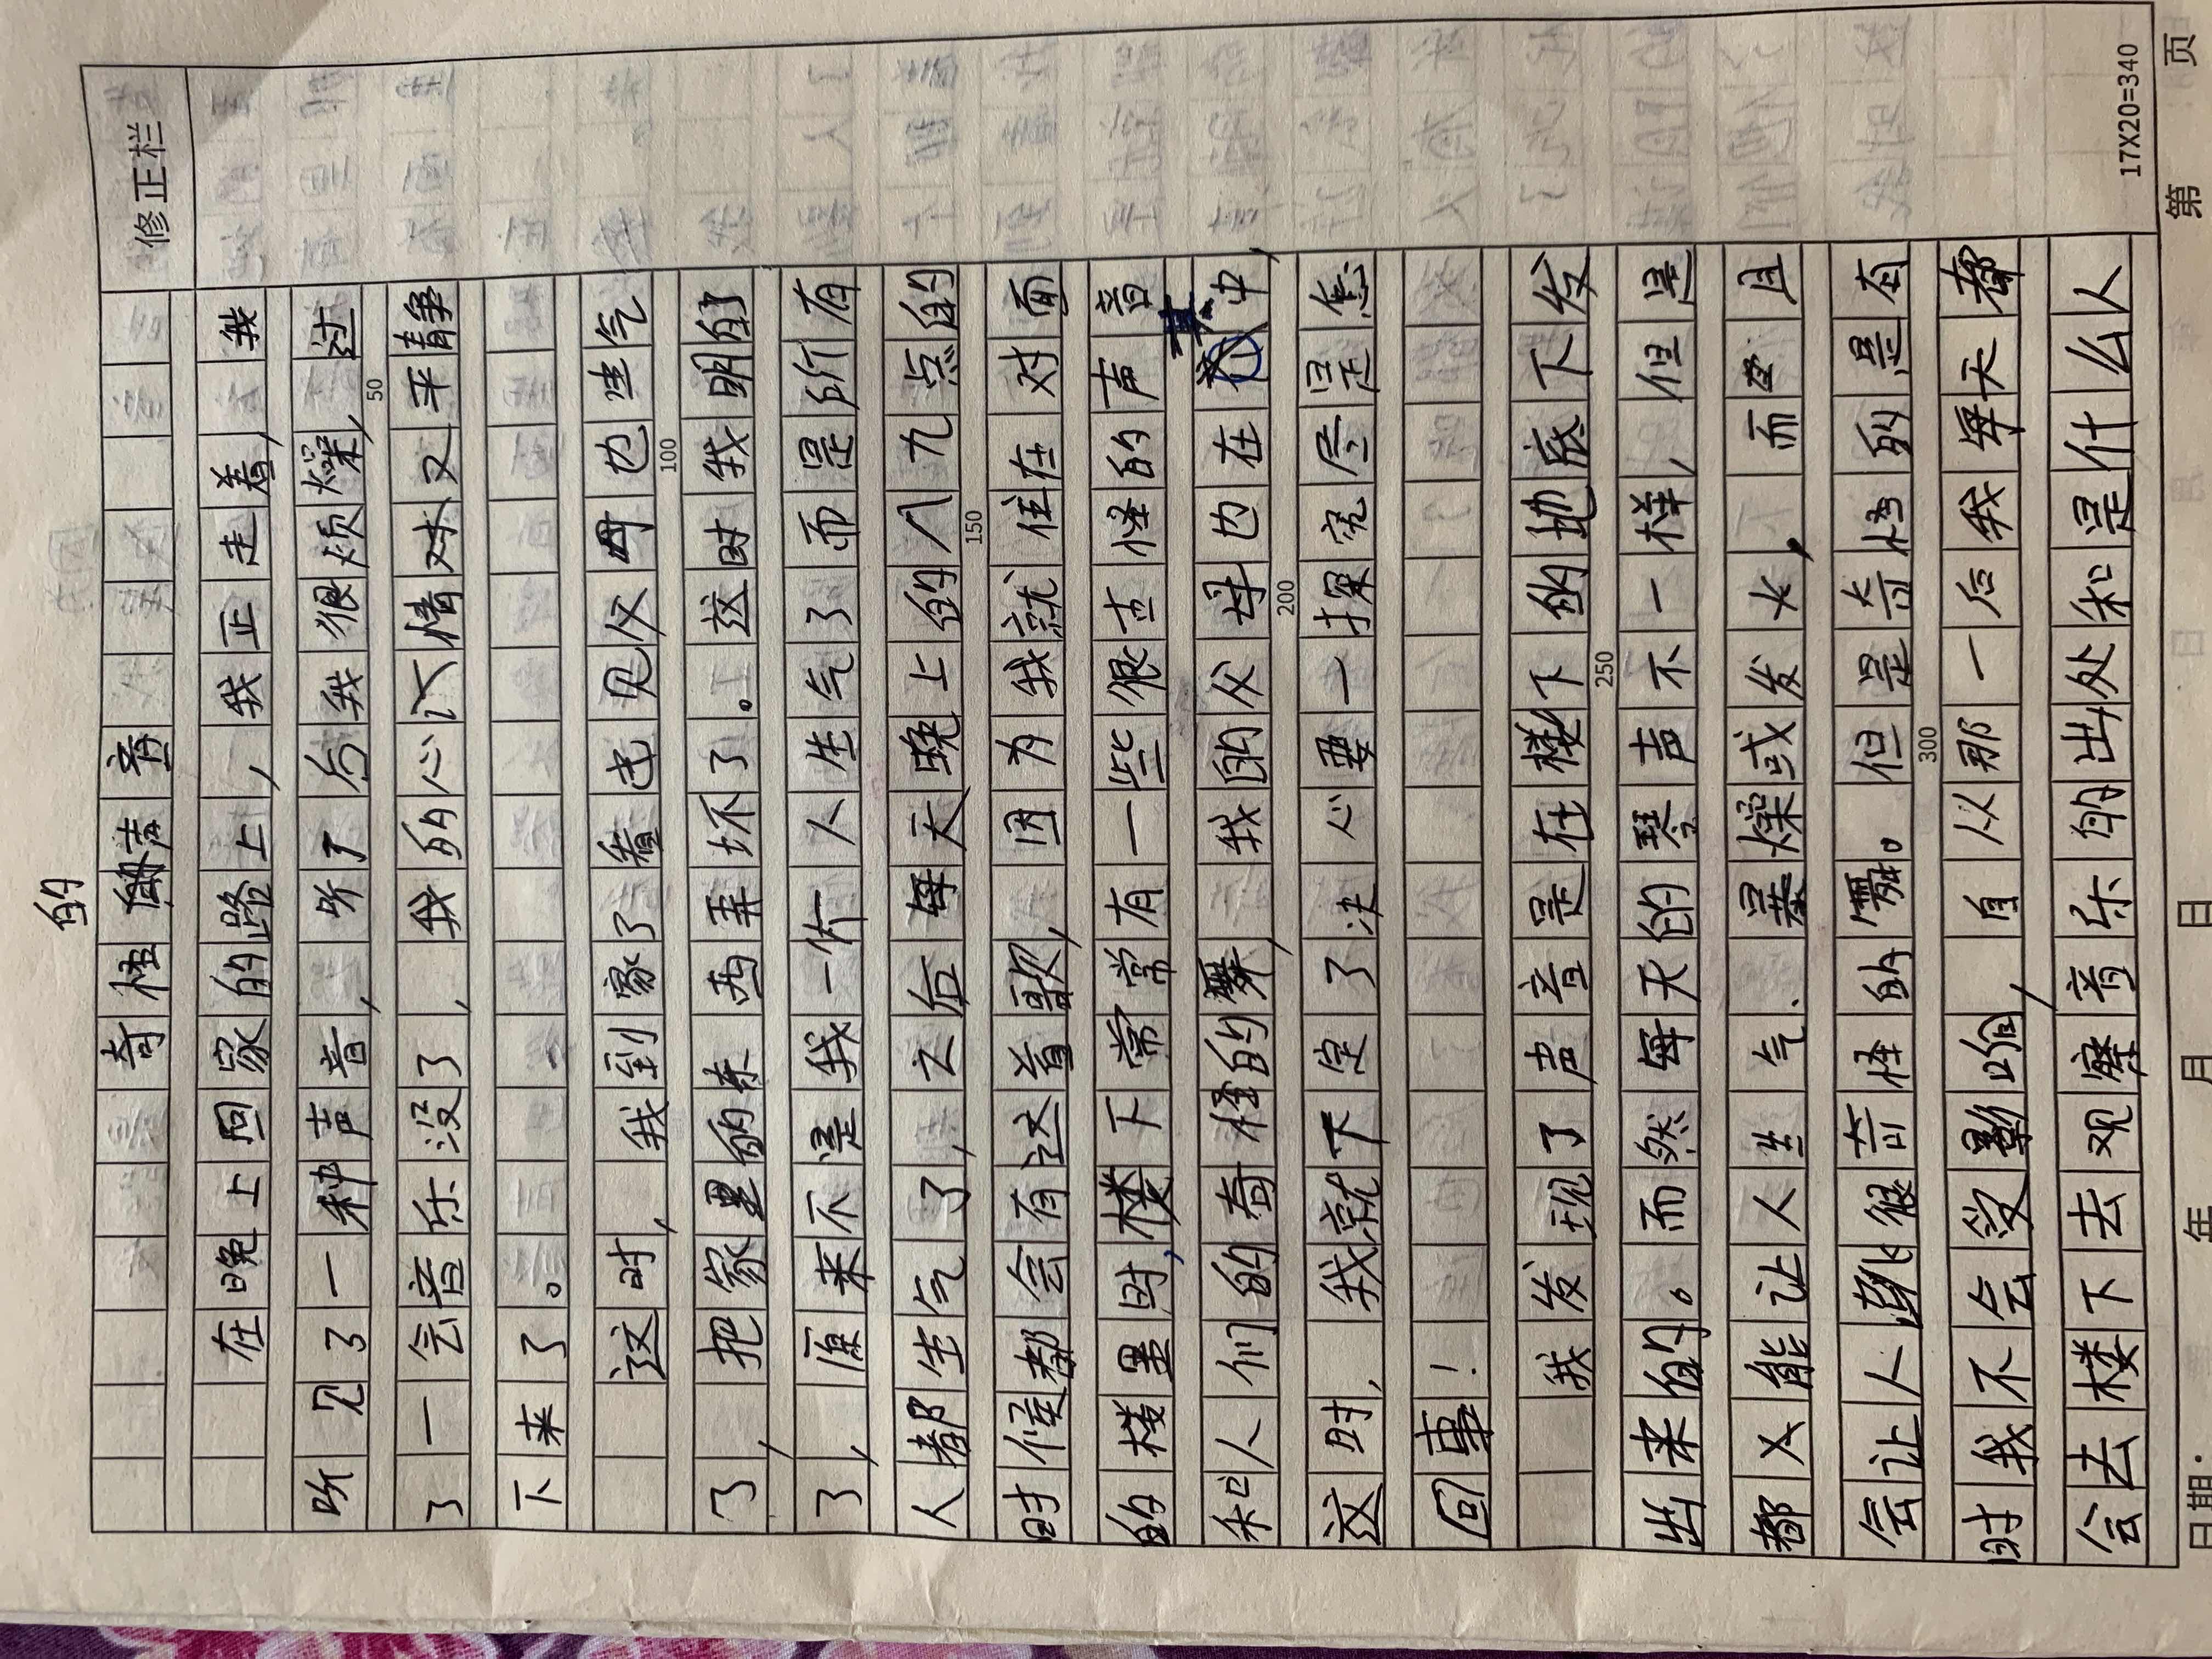 修正栏
的
奇怪声音
在晚上回家的路上，我正走着，我
听见了一种声音，听了后我很烦燥，过
了一会音乐没了，我的心情又平静
下来了。
这时，我到家了看也见父母也生气
了，把家里的东西弄坏了。这时我明白了
了，原来不是我一个人生气了而是所有
人都生气了，之后每天晚上的八九点的
时候都会有这首歌，因为我就住在对面
的楼里时，楼下常常有一些很古怪的声音
和人们的奇怪的舞，我的父母也在其中，
这时，我就下定了决心要一探究尽是怎
回事！
我发现了声音是在楼下的地底下发
出来的。而然每天的琴声不一样，但是
都又能让人生气、暴燥或发火，而且
会让人跳很奇怪的舞。但是奇怪的是有
时我不会受影响，自从那一后我每天都
会去楼下去观察音乐的出处和是什么人
50
100
150
200
250
300
17X20=340
日期： 年 月 日 第 页